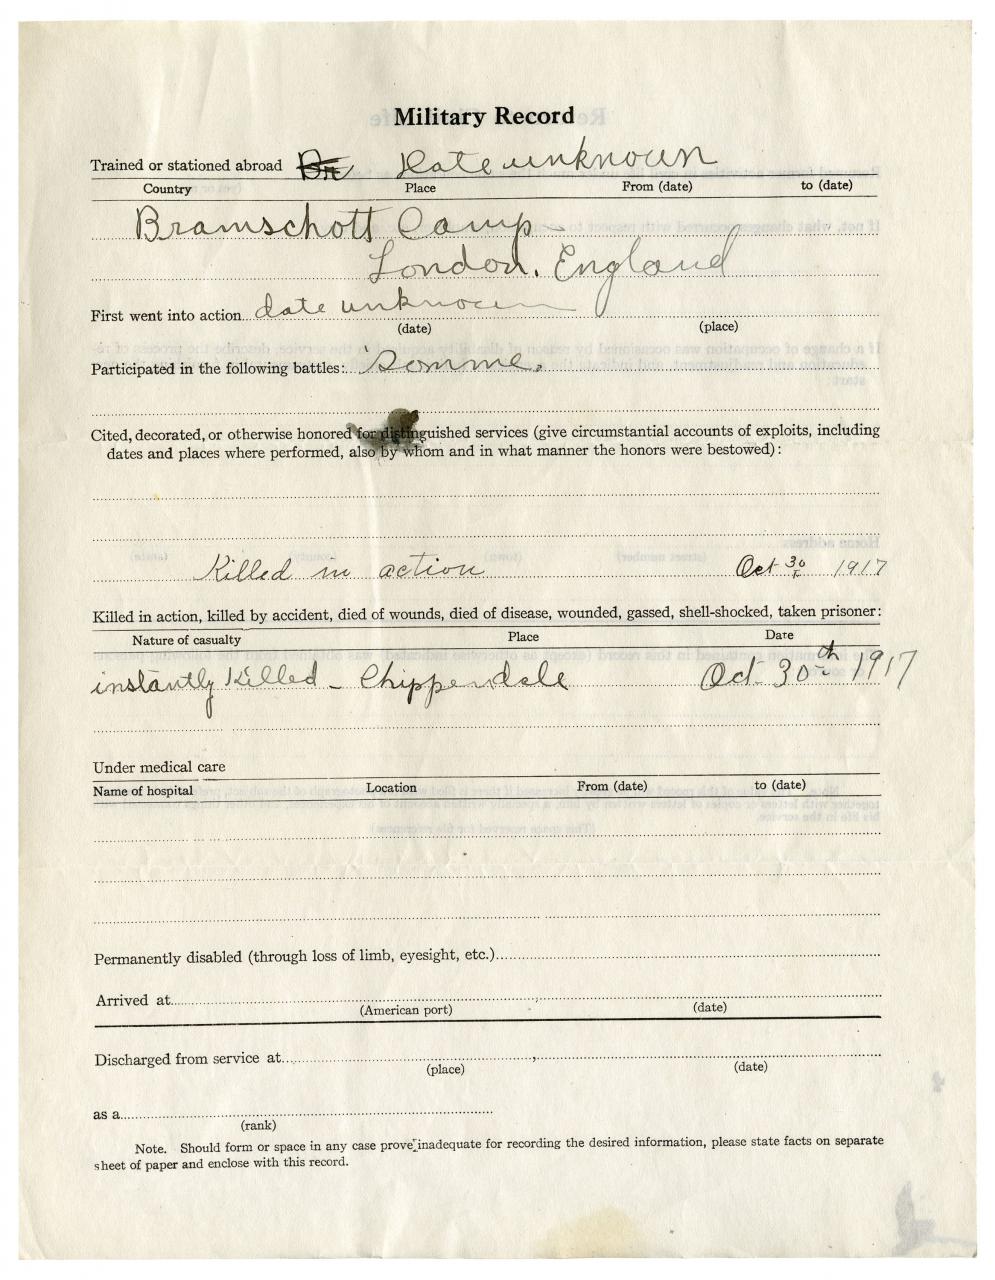 Military Record
Trained or stationed abroad Date unknown
Country Place From (date) to (date)
Bramschott Camp
London, England
First went into action date unknown
(date) (place)
Participated in the following battles: Somme.
Cited, decorated, or otherwise honored for distinguished services (give circumstantial accounts of exploits, including
dates and places where performed, also by whom and in what manner the honors were bestowed):
Killed in action Oct 30 1917
Killed in action, killed by accident, died of wounds, died of disease, wounded, gassed, shell-shocked, taken prisoner:
Nature of casualty Place Date
instantly killed - Chippendale Oct 30th 1917
Under medical care
Name of hospital Location From (date) to (date)
Permanently disabled (through loss of limb, eyesight, etc.)
Arrived at
(American port) (date)
Discharged from service at
(place) (date)
as a
(rank)
Note. Should form or space in any case prove inadequate for recording the desired information, please state facts on separate
sheet of paper and enclose with this record.